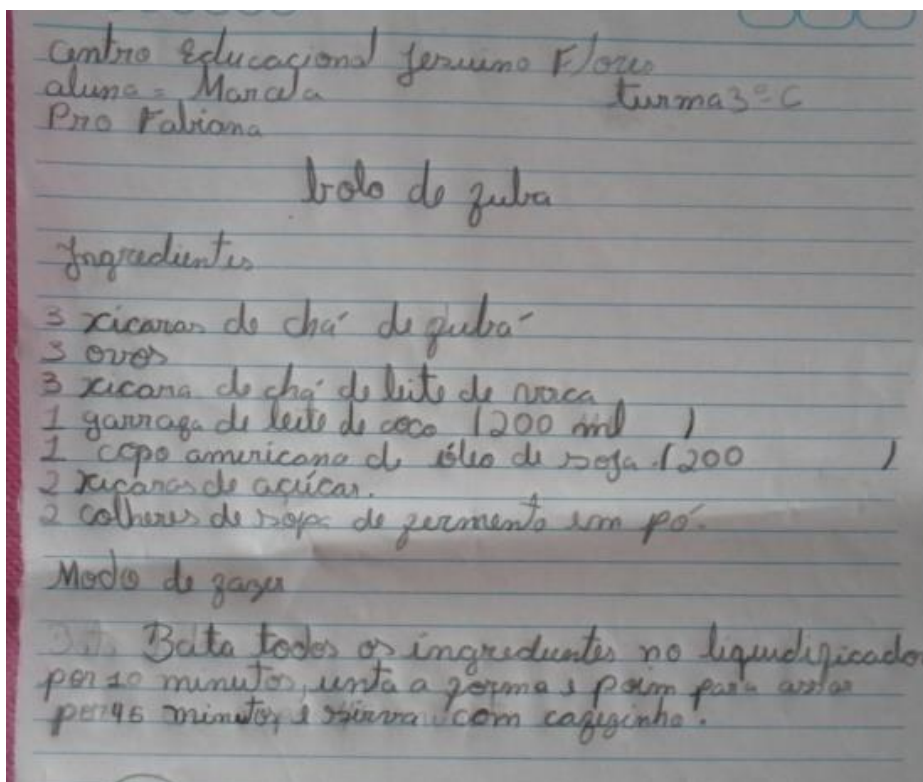 Centro Educacional Jesuino Flores
aluna = Marcela turma 3º C
Pro Fabiana
bolo de fuba
Ingredientes
3 xicaras de chá de fubá
3 ovos
3 xicara de chá de leite de vaca
1 garrafa de leite de coco (200 ml )
1 copo americano de óleo de soja (200 )
2 xicaras de açúcar.
2 colheres de sopa de fermento em pó.
Modo de fazer
Bata todos os ingredientes no liquidificador
por 10 minutos, unta a forma e para assar
por 45 minutos e sirva com cafezinho.